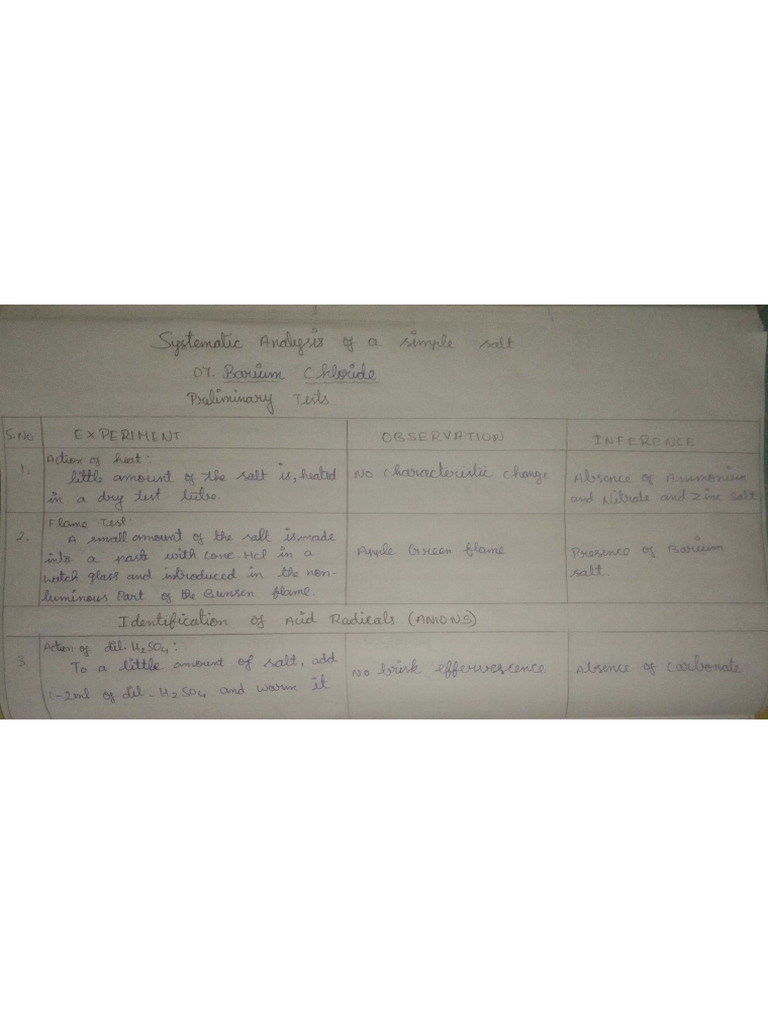 Systematic Analysis of a simple salt
07. Barium Chloride
Preliminary Tests
S.NO EXPERIMENT OBSERVATION INFERENCE
1. Action of heat:
little amount of the salt is, heated
in a dry test tube.
No characteristic change
Absence of Ammonium
and Nitrate and Zinc salt
2. Flame Test:
A small amount of the salt is made
into a paste with conc. Hcl in a
watch glass and introduced in the non-
luminous Part of the Bunsen flame.
Apple Green flame
Presence of Barium
salt.
Identification of Acid Radicals (ANIONS)
3 Action of dil. H2SO4:
To a little amount of salt, add
1-2ml of dil. H2SO4 and warm it
No brisk effervescence
Absence of Carbonate